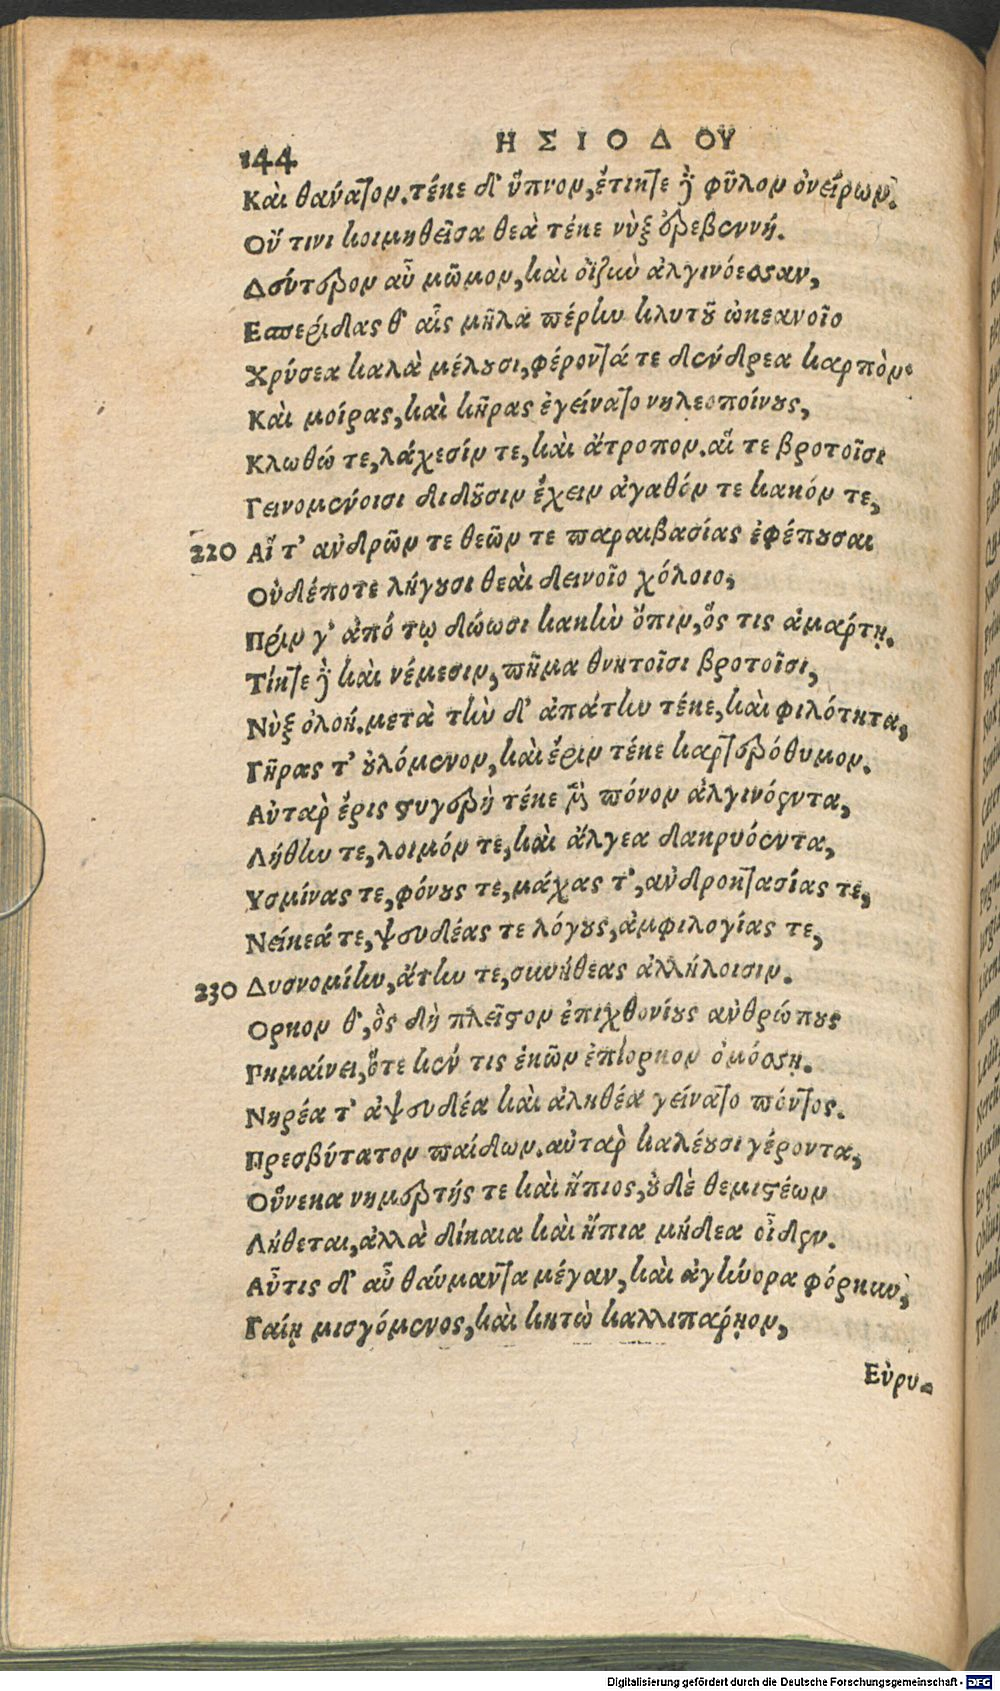 144
ΗΣΙΟΔΟΥ
Καὶ θάνατον. τέκε δ' ὕπνον, ἔτικτε δὲ φῦλον ὀνείρων.
Οὔ τινι κοιμηθεῖσα θεὰ τέκε νὺξ ἐρεβεννή.
Δεύτερον αὖ μῶμον, καὶ ὀϊζιὺ ἀλγινόεσσαν,
Εσπερίδας θ' αἷς μῆλα πέρην κλυτοῦ ὠκεανοῖο
Χρύσεα καλὰ μέλουσι, φέροντά τε δένδρεα καρπόν·
Καὶ μοίρας, καὶ κῆρας ἐγείνατο νηλεοποίνους,
Κλωθώ τε, λάχεσίν τε, καὶ ἄτροπον. αἵ τε βροτοῖσι
Γεινομένοισι διδοῦσιν ἔχειν ἀγαθόν τε κακόν τε,
220 Αἵ τ' ἀνδρῶν τε θεῶν τε παραιβασίας ἐφέπουσαι
Οὐδέποτε λήγουσι θεαὶ δεινοῖο χόλοιο,
Πρίν γ' ἀπό τῳ δώωσι κακὴν ὄπιν, ὅς τις ἁμάρτῃ.
Τίκτε δὲ καὶ νέμεσιν, πῆμα θνητοῖσι βροτοῖσι,
Νὺξ ὀλοή. μετὰ τὴν δ' ἀπάτην τέκε, καὶ φιλότητα,
Γῆρας τ' οὐλόμενον, καὶ ἔριν τέκε καρτερόθυμον.
Αὐτὰρ ἔρις στυγερὴ τέκε μὲν πόνον ἀλγινόεντα,
Λήθην τε, λοιμόν τε, καὶ ἄλγεα δακρυόεντα,
Υσμίνας τε, φόνους τε, μάχας τ', ἀνδροκτασίας τε,
Νείκεά τε, ψευδέας τε λόγους, ἀμφιλογίας τε,
230 Δυσνομίην, ἄτην τε, συνήθεας ἀλλήλοισιν.
Ορκον θ', ὃς δὴ πλεῖστον ἐπιχθονίους ἀνθρώπους
Πημαίνει, ὅτε κέν τις ἑκὼν ἐπίορκον ὀμόσσῃ.
Νηρέα τ' ἀψευδέα καὶ ἀληθέα γείνατο πόντος.
Πρεσβύτατον παίδων. αὐτὰρ καλέουσι γέροντα,
Οὕνεκα νημερτής τε καὶ ἤπιος, οὐδὲ θεμιστέων
Λήθεται, ἀλλὰ δίκαια καὶ ἤπια μήδεα οἶδεν.
Αὖτις δ' αὖ θαύμαντα μέγαν, καὶ ἀγήνορα φόρκυν,
Γαίῃ μισγόμενος, καὶ κητὼ καλλιπάρῃον,
Εὐρυ-
Digitalisierung gefördert durch die Deutsche Forschungsgemeinschaft - DFG